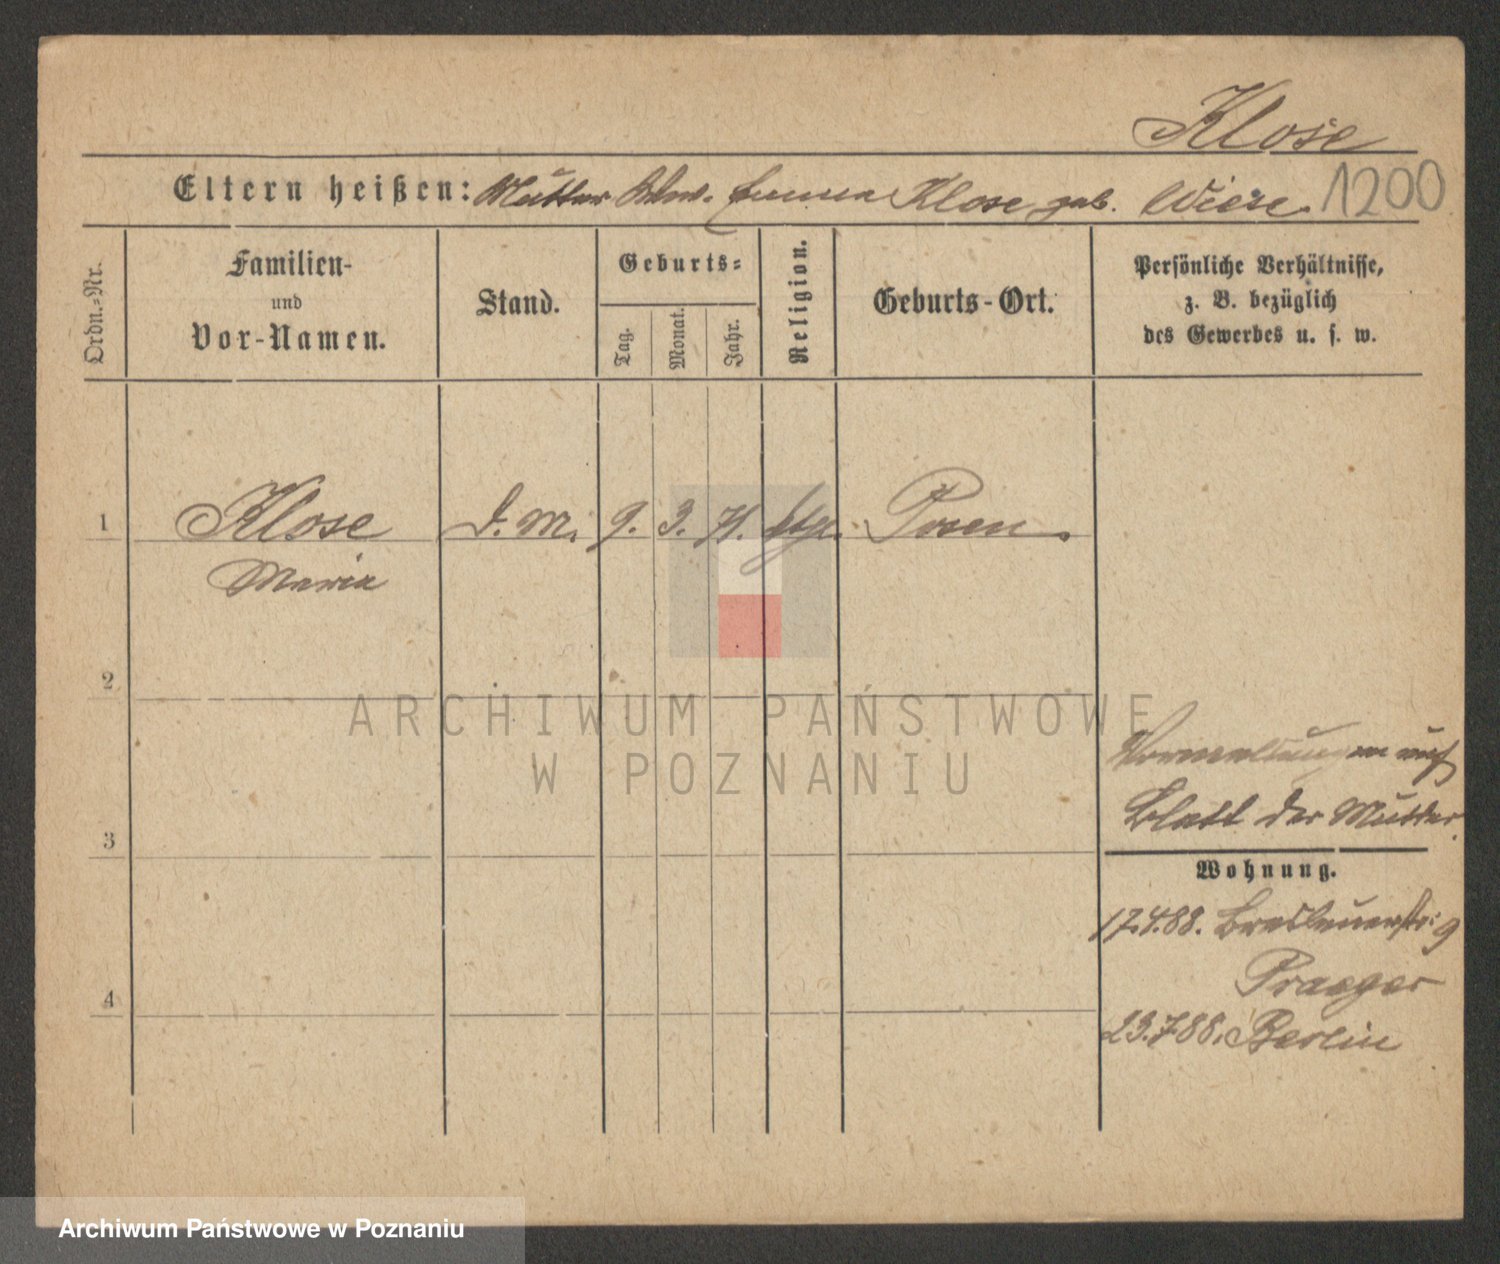 Klose
Eltern heißen: Mutter Wwe. Emma Klose geb. Wiese.
1200
Ordn.=Nr.
Familien-
und
Vor-Namen.
Stand.
Geburts=
Tag.
Monat.
Jahr.
Religion.
Geburts-Ort.
Persönliche Verhältnisse,
z. B. bezüglich
des Gewerbes u. s. w.
1 Klose d. M. 9. 3. 71. Posen.
Maria
2
ARCHIWUM PAŃSTWOWE
W POZNANIU
auf
Blatt der Mutter.
3
Wohnung.
17.4.88. Breslauerstr: 9
Praeger
4
23.7.88. Berlin
Archiwum Państwowe w Poznaniu